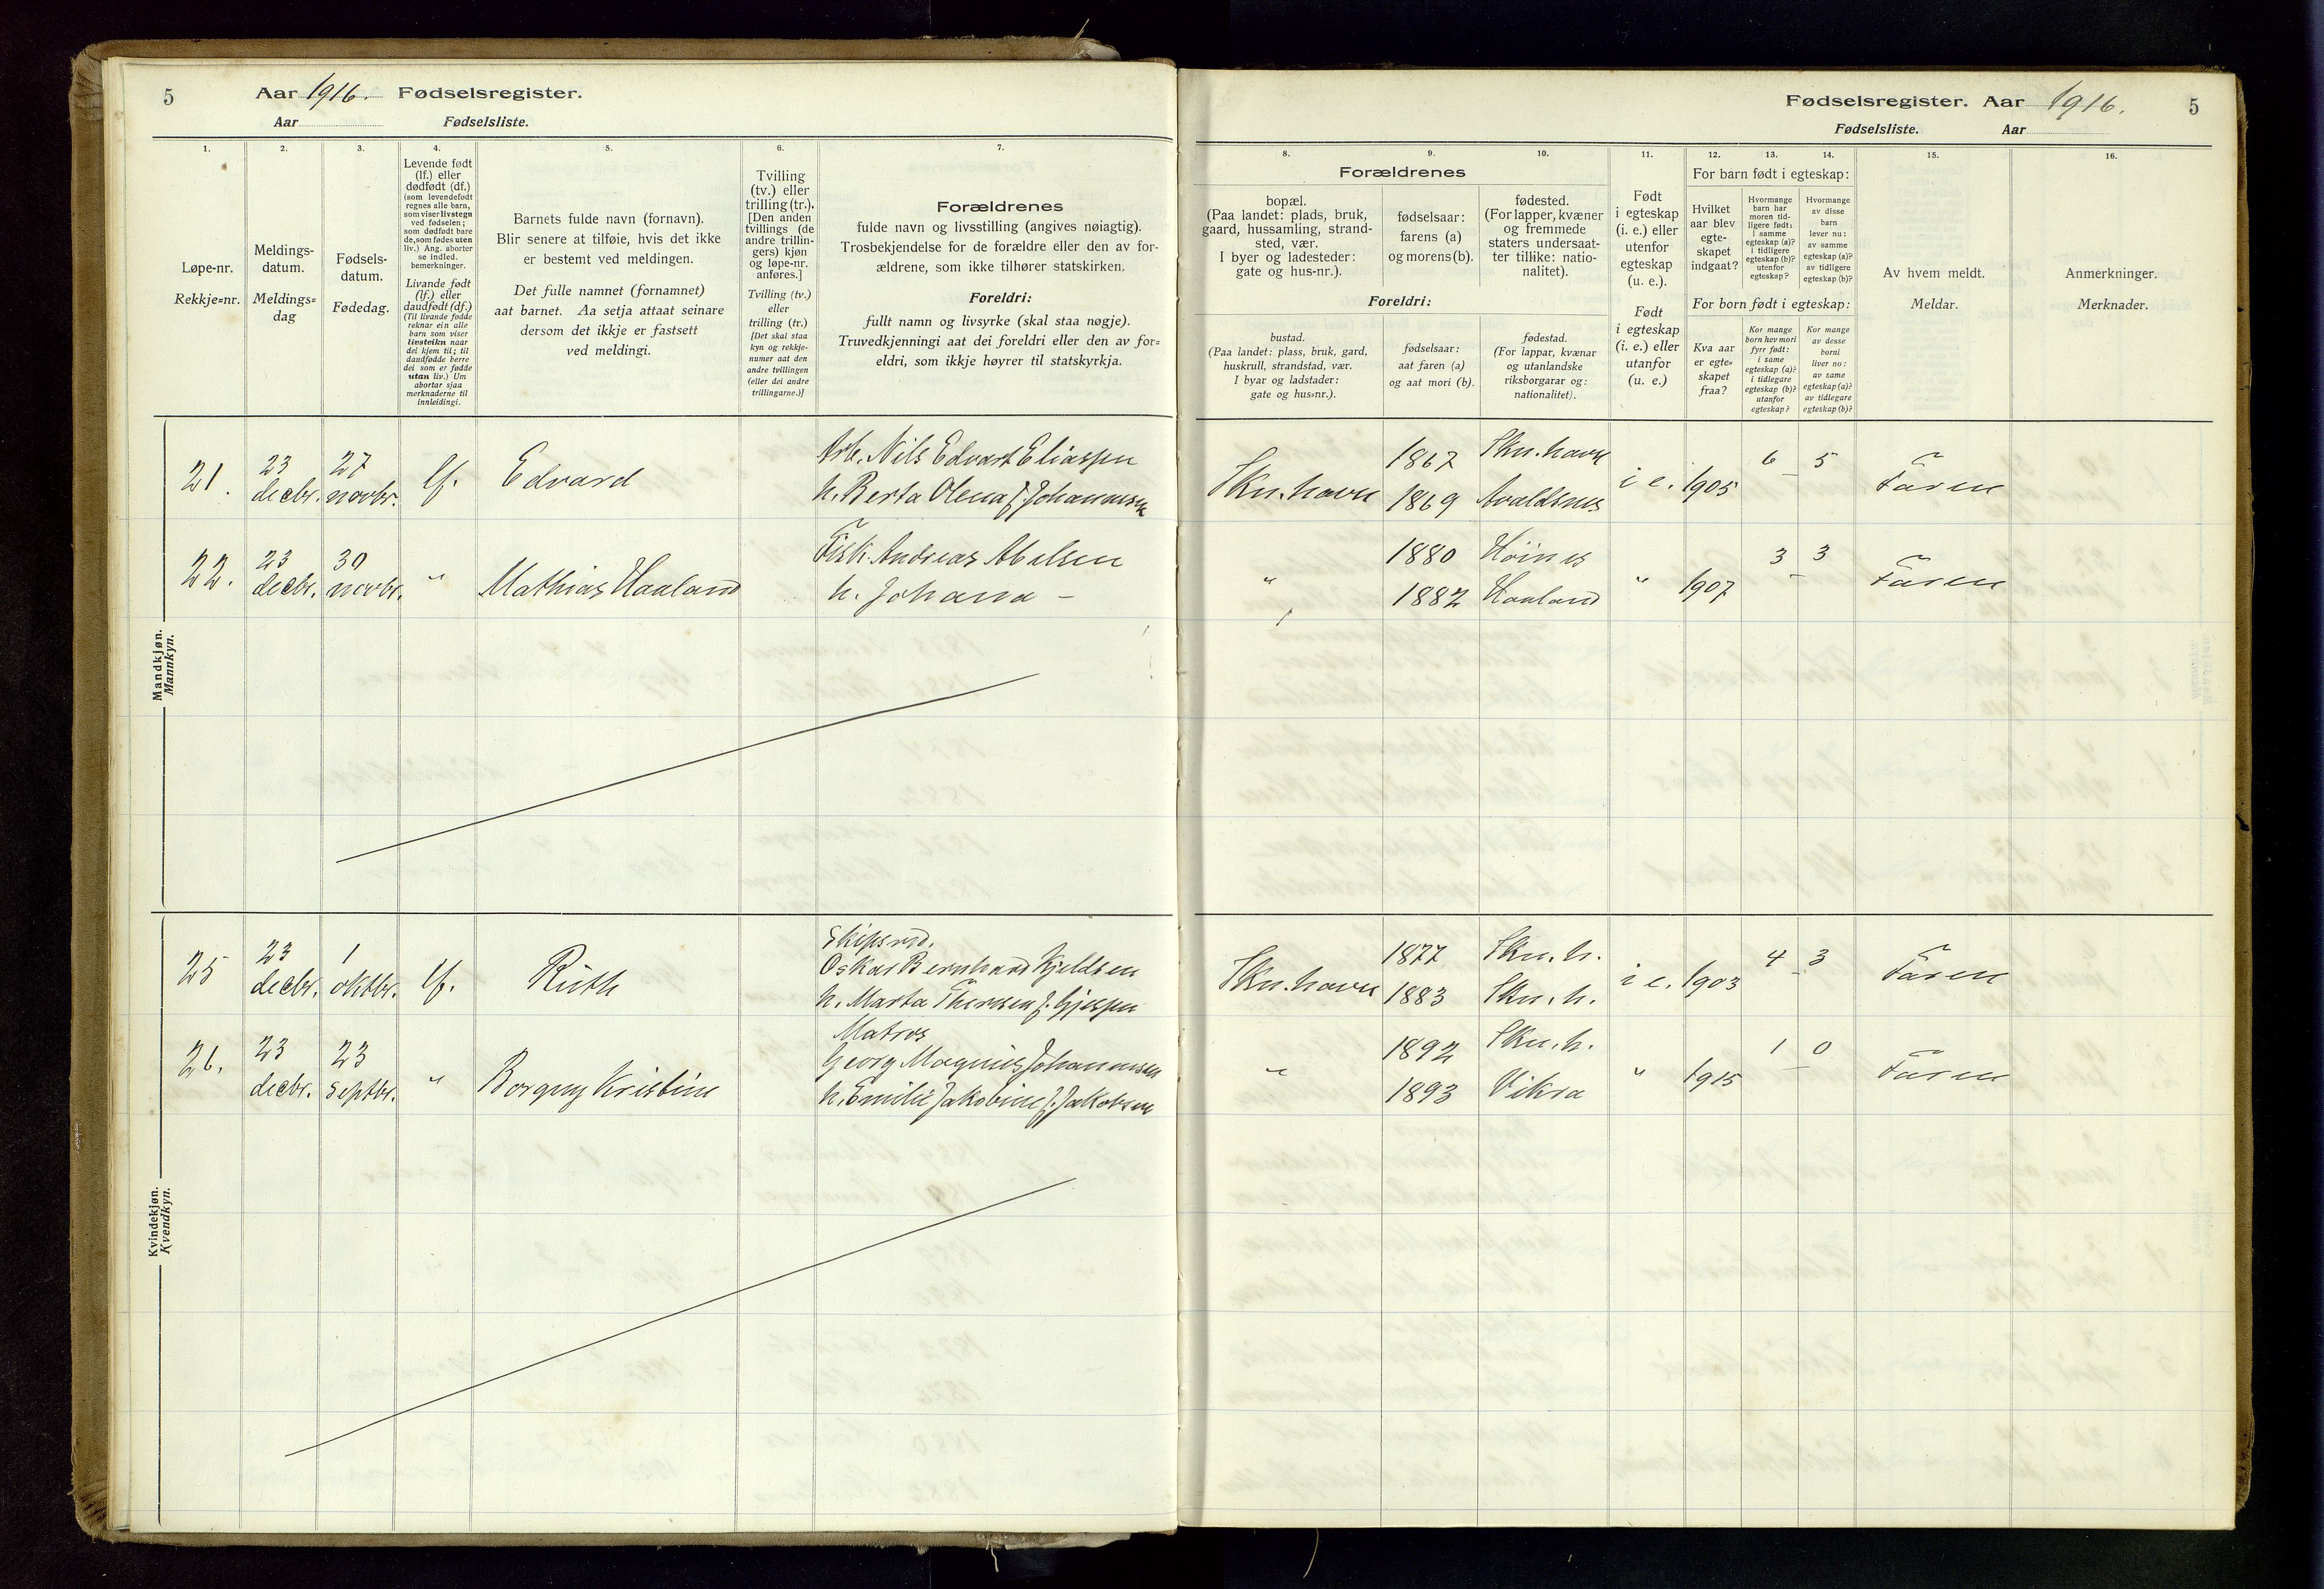 5
Aar 1916. Fødselsregister.
Aar Fødselsliste.
1.
Løpe-nr.
Rekkje-nr.
2.
Meldings-
datum.
Meldings-
dag
3.
Fødsels-
datum.
Fødedag.
4.
Levende født
(lf.) eller
dødfødt (df.)
(som levendefødt
regnes alle barn,
som viser livstegn
ved fødselen;
som dødfødt bare
de, som fødes uten
liv.) Ang. aborter
se indled.
bemerkninger.
Livande født
(lf.) eller
daudfødt (df.)
(Til livande fødde
reknar ein alle
barn som viser
livsteikn naar
dei kjem til; til
daudfødde berre
dei som er fødde
utan liv.) Um
abortar sjaa
merknaderne til
innleidingi.
5.
Barnets fulde navn (fornavn).
Blir senere at tilføie, hvis det ikke
er bestemt ved meldingen.
Det fulle namnet (fornamnet)
aat barnet. Aa setja attaat seinare
dersom det ikkje er fastsett
ved meldingi.
6.
Tvilling
(tv.) eller
trilling (tr.).
[Den anden
tvillings (de
andre trillin-
gers) kjøn
og løpe-nr.
anføres.]
Tvilling (tv.)
eller
trilling (tr.)
[Det skal staa
kyn og rekkje-
numer aat den
andre tvillingen
(eller dei andre
trillingarne.)]
7.
Forældrenes
fulde navn og livsstilling (angives nøiagtig).
Trosbekjendelse for de forældre eller den av for-
ældrene, som ikke tilhører statskirken.
Foreldri:
fullt namn og livsyrke (skal staa nøgje).
Truvedkjenningi aat dei foreldri eller den av for-
eldri, som ikkje høyrer til statskyrkja.
Mandkjøn.
Mannkyn.
21. 23 decbr. 27 novbr. lf. Edvard
Arb. Nils Edvart Eliassen
h. Berta Olena f. Johannesen
22. 23 decbr. 30 novbr. " Mathias Haaland
Fisk. Andreas Abelsen
h. Johana –
Kvindekjøn.
Kvendkyn.
25 23 decbr. 1 oktbr. lf. Ruth
Skipsred.
Oskar Bernhard Kjeldsen
h. Marta Theresen f. Gjessen
26. 23 decbr. 23 septbr. " Borgny Kristine
Matros
Georg Magnus Johannesen
h. Emilie Jakobine f. Jakobsen
Fødselsregister. Aar 1916. 5
Fødselsliste. Aar
8.
Forældrenes
bopæl.
(Paa landet: plads, bruk,
gaard, hussamling, strand-
sted, vær.
I byer og ladesteder:
gate og hus-nr.).
Foreldri:
bustad.
(Paa landet: plass, bruk, gard,
huskrull, strandstad, vær.
I byar og ladstader:
gate og hus-nr.).
9.
fødselsaar:
farens (a)
og morens (b).
fødselsaar:
aat faren (a)
og aat mori (b).
10.
fødested.
(For lapper, kvæner
og fremmede
staters undersaat-
ter tillike: natio-
nalitet).
fødestad.
(For lappar, kvænar
og utanlandske
riksborgarar og:
nationalitet).
11.
Født
i egteskap
(i. e.) eller
utenfor
egteskap
(u. e.).
Født
i egteskap
(i. e.) eller
utanfor
(u. e.)
12.
13.
14.
For barn født i egteskap:
Hvilket
aar blev
egte-
skapet
indgaat?
Hvormange
barn har
moren tid-
ligere født:
i samme
egteskap (a)?
i tidligere
egteskap (b)?
utenfor
egteskap?
Hvormange
av disse
barn
lever nu:
av samme
egteskap (a)?
av tidligere
egteskap (b)?
For born født i egteskap:
Kva aar
er egte-
skapet
fraa?
Kor mange
born hev mori
fyrr født:
i same
egteskap (a)?
i tidlegare
egteskap (b)?
utanfor
egteskap?
Kor mange
av desse
borni
liver no:
av same
egteskap (a)?
av tidlegare
egteskap (b)?
15.
Av hvem meldt.
Meldar.
16.
Anmerkninger.
Merknader.
Skn.havn 1867 Skn.havn i e. 1905 6 – 5 Faren
1869 Avaldsnes
" 1880 Høines " 1907 3 – 3 Faren
1882 Haaland
Skn.havn 1877 Skn.h. i e. 1903 4 – 3 Faren
1883 Skn.h.
" 1892 Skn.h. " 1915 1 – 0 Faren
1893 Vikra